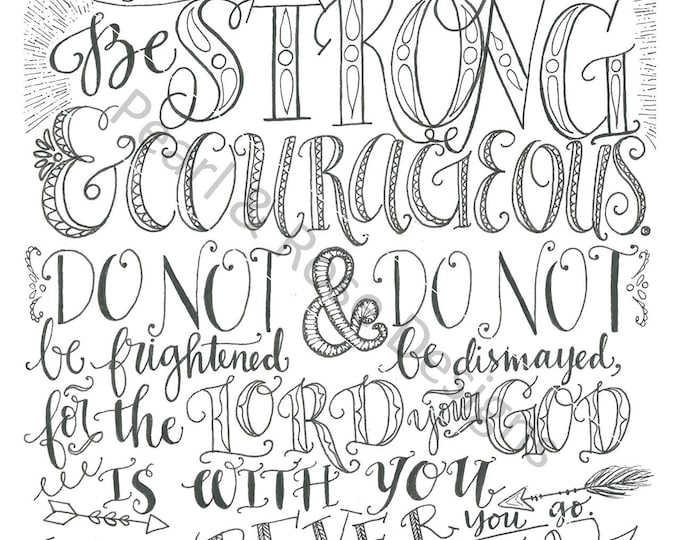 Be STRONG
& COURAGEOUS.
DO NOT & DO NOT
be frightened be dismayed,
for the LORD your GOD
is WITH YOU
you go.
Pearl & Rose Designs